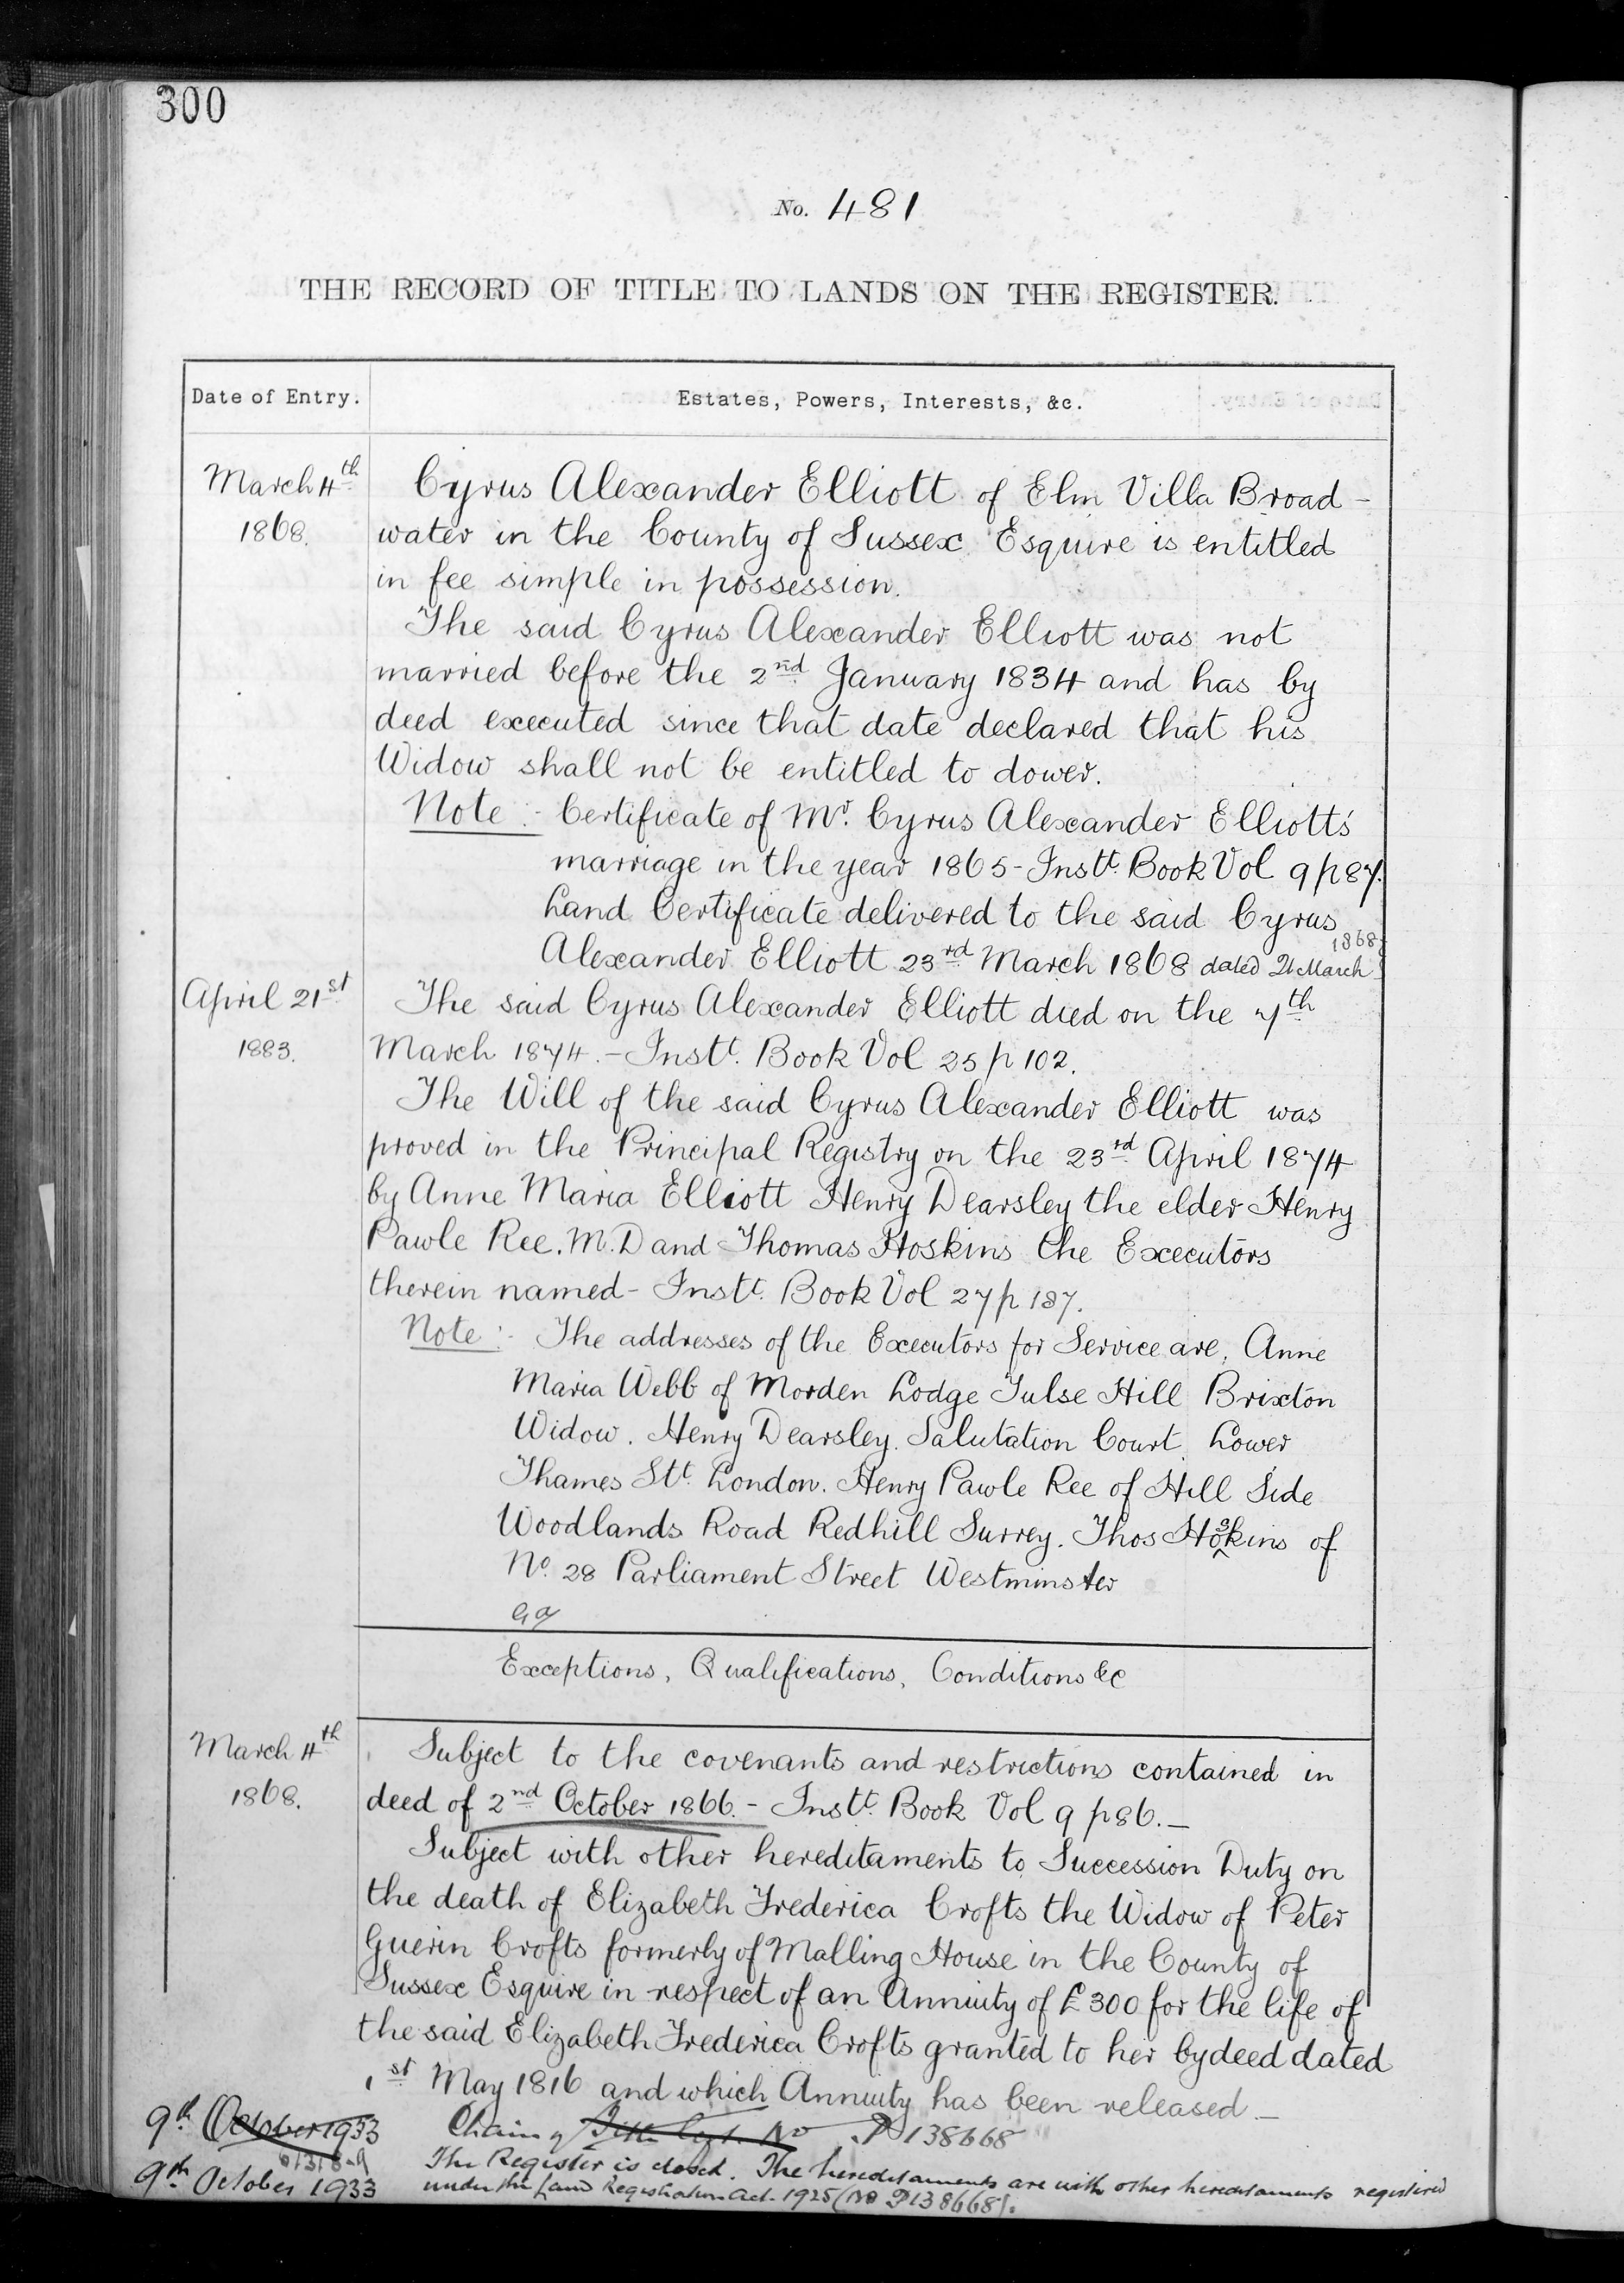 300
No. 481
THE RECORD OF TITLE TO LANDS ON THE REGISTER.
Date of Entry.
Estates, Powers, Interests, &c.
March 4th
1868.
Cyrus Alexander Elliott of Elm Villa Broad-
water in the County of Sussex Esquire is entitled
in fee simple in possession.
The said Cyrus Alexander Elliott was not
married before the 2nd January 1834 and has by
deed executed since that date declared that his
Widow shall not be entitled to dower.
Note:- Certificate of Mr. Cyrus Alexander Elliott's
marriage in the year 1865 - Instt. Book Vol 9 p 87.
Land Certificate delivered to the said Cyrus
Alexander Elliott 23rd March 1868 dated 21 March 1868
April 21st
1883.
The said Cyrus Alexander Elliott died on the 7th
March 1874. - Instt. Book Vol 25 p 102.
The Will of the said Cyrus Alexander Elliott was
proved in the Principal Registry on the 23rd April 1874
by Anne Maria Elliott Henry Dearsley the elder Henry
Pawle Ree. M.D and Thomas Hoskins the Executors
therein named - Instt. Book Vol 27 p 187.
Note:- The addresses of the Executors for Service are, Anne
Maria Webb of Morden Lodge Tulse Hill Brixton
Widow. Henry Dearsley. Salutation Court Lower
Thames Stt. London. Henry Pawle Ree of Hill Side
Woodlands Road Redhill Surrey. Thos Hoskins of
No. 28 Parliament Street Westminster
Exceptions, Qualifications, Conditions &c
March 4th
1868.
Subject to the covenants and restrictions contained in
deed of 2nd October 1866. - Instt. Book Vol 9 p 86. -
Subject with other hereditaments to Succession Duty on
the death of Elizabeth Frederica Crofts the Widow of Peter
Guerin Crofts formerly of Malling House in the County of
Sussex Esquire in respect of an Annuity of £300 for the life of
the said Elizabeth Frederica Crofts granted to her by deed dated
1st May 1816 and which Annuity has been released -
9th October 1933
Title No P138668
9th October 1933
The Register is closed. The hereditaments are with other hereditaments registered
under the Land Registration Act. 1925 (No P138668).